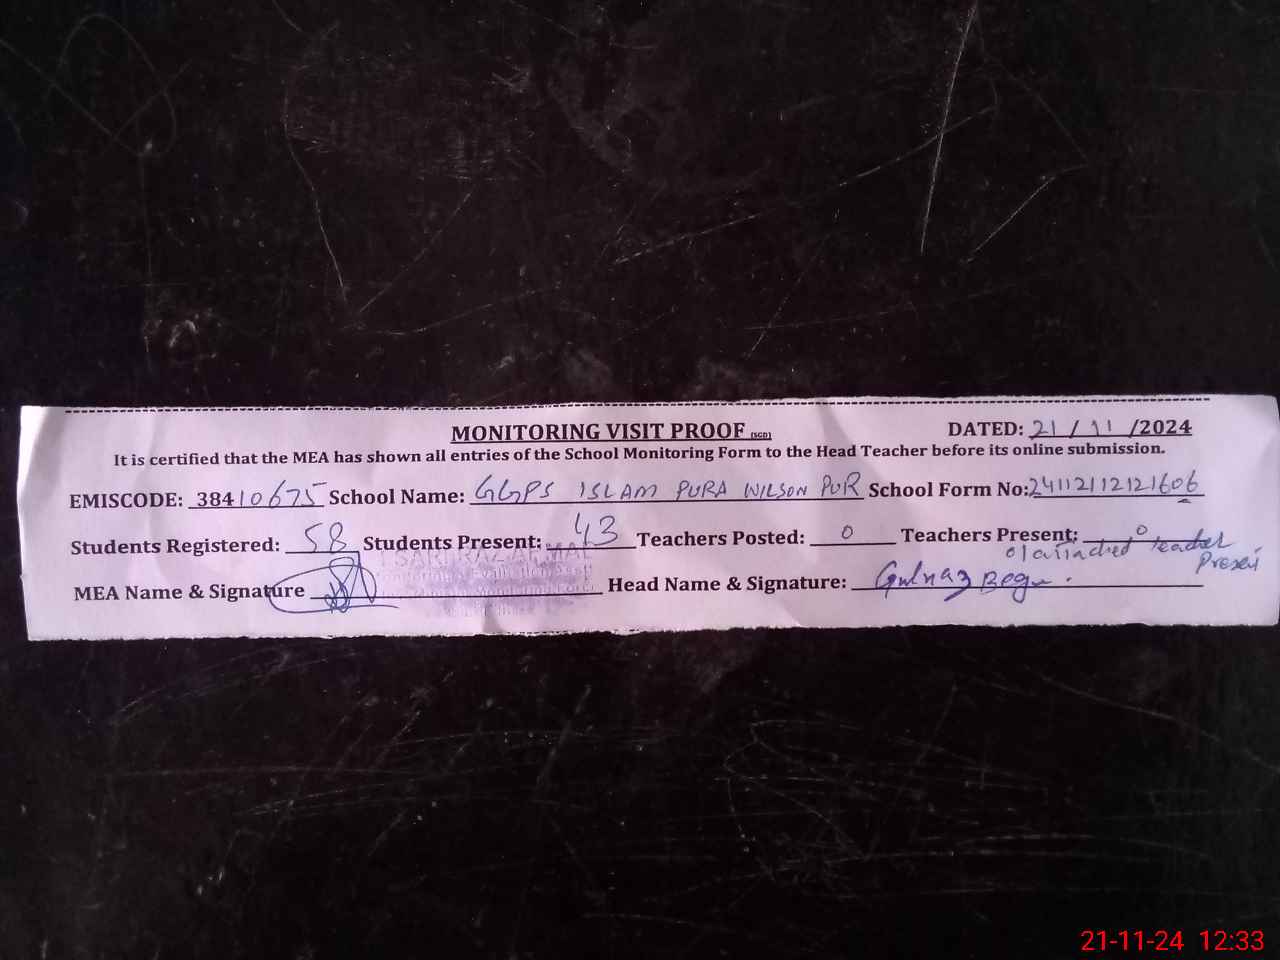 MONITORING VISIT PROOF (SGD) DATED: 21/11/2024
It is certified that the MEA has shown all entries of the School Monitoring Form to the Head Teacher before its online submission.
EMISCODE: 38410675 School Name: GGPS ISLAM PURA WILSON PUR School Form No: 24112112121606
Students Registered: 58 Students Present: 43 Teachers Posted: 0 Teachers Present: 0
teacher Present
MEA Name & Signature Head Name & Signature: Gulnaz Begum
21-11-24 12:33